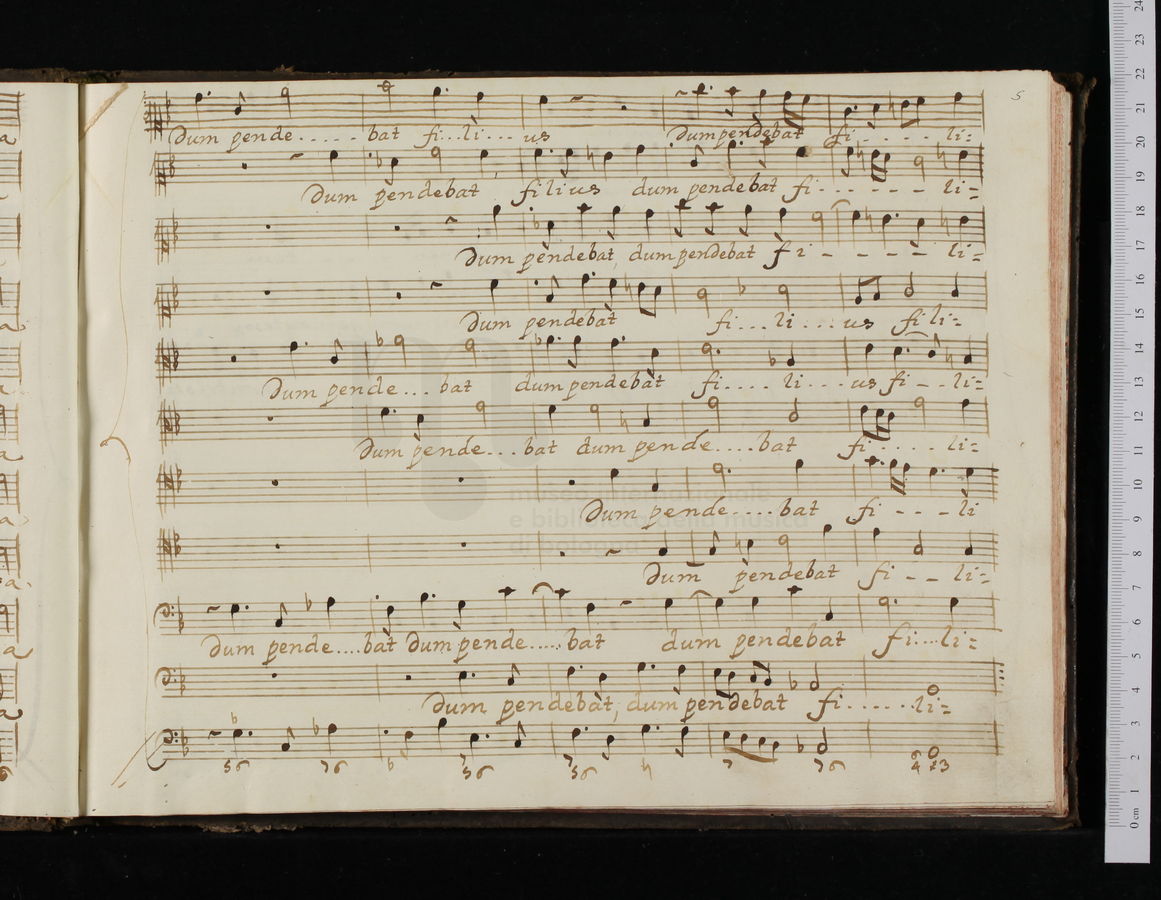 5
Dum pende..... bat fi...li... us Dum pendebat fi..... li=
Dum pendebat filius dum pendebat fi------ li=
Dum pendebat, dum pendebat fi ---- li=
Dum pendebat fi...li...us fili=
Dum pende... bat dum pendebat fi.... li... us fi -- li=
Dum pende... bat dum pende.... bat fi.... li=
Dum pende.... bat fi --- li
Dum pendebat fi -- li=
Dum pende.... bat Dum pende..... bat dum pendebat fi...li=
Dum pendebat, dum pendebat fi......li=
56 76 b 36 36 7 76 6 4 23
museo internazionale
e biblioteca della musica
di bologna
0 cm 1 2 3 4 5 6 7 8 9 10 11 12 13 14 15 16 17 18 19 20 21 22 23 24